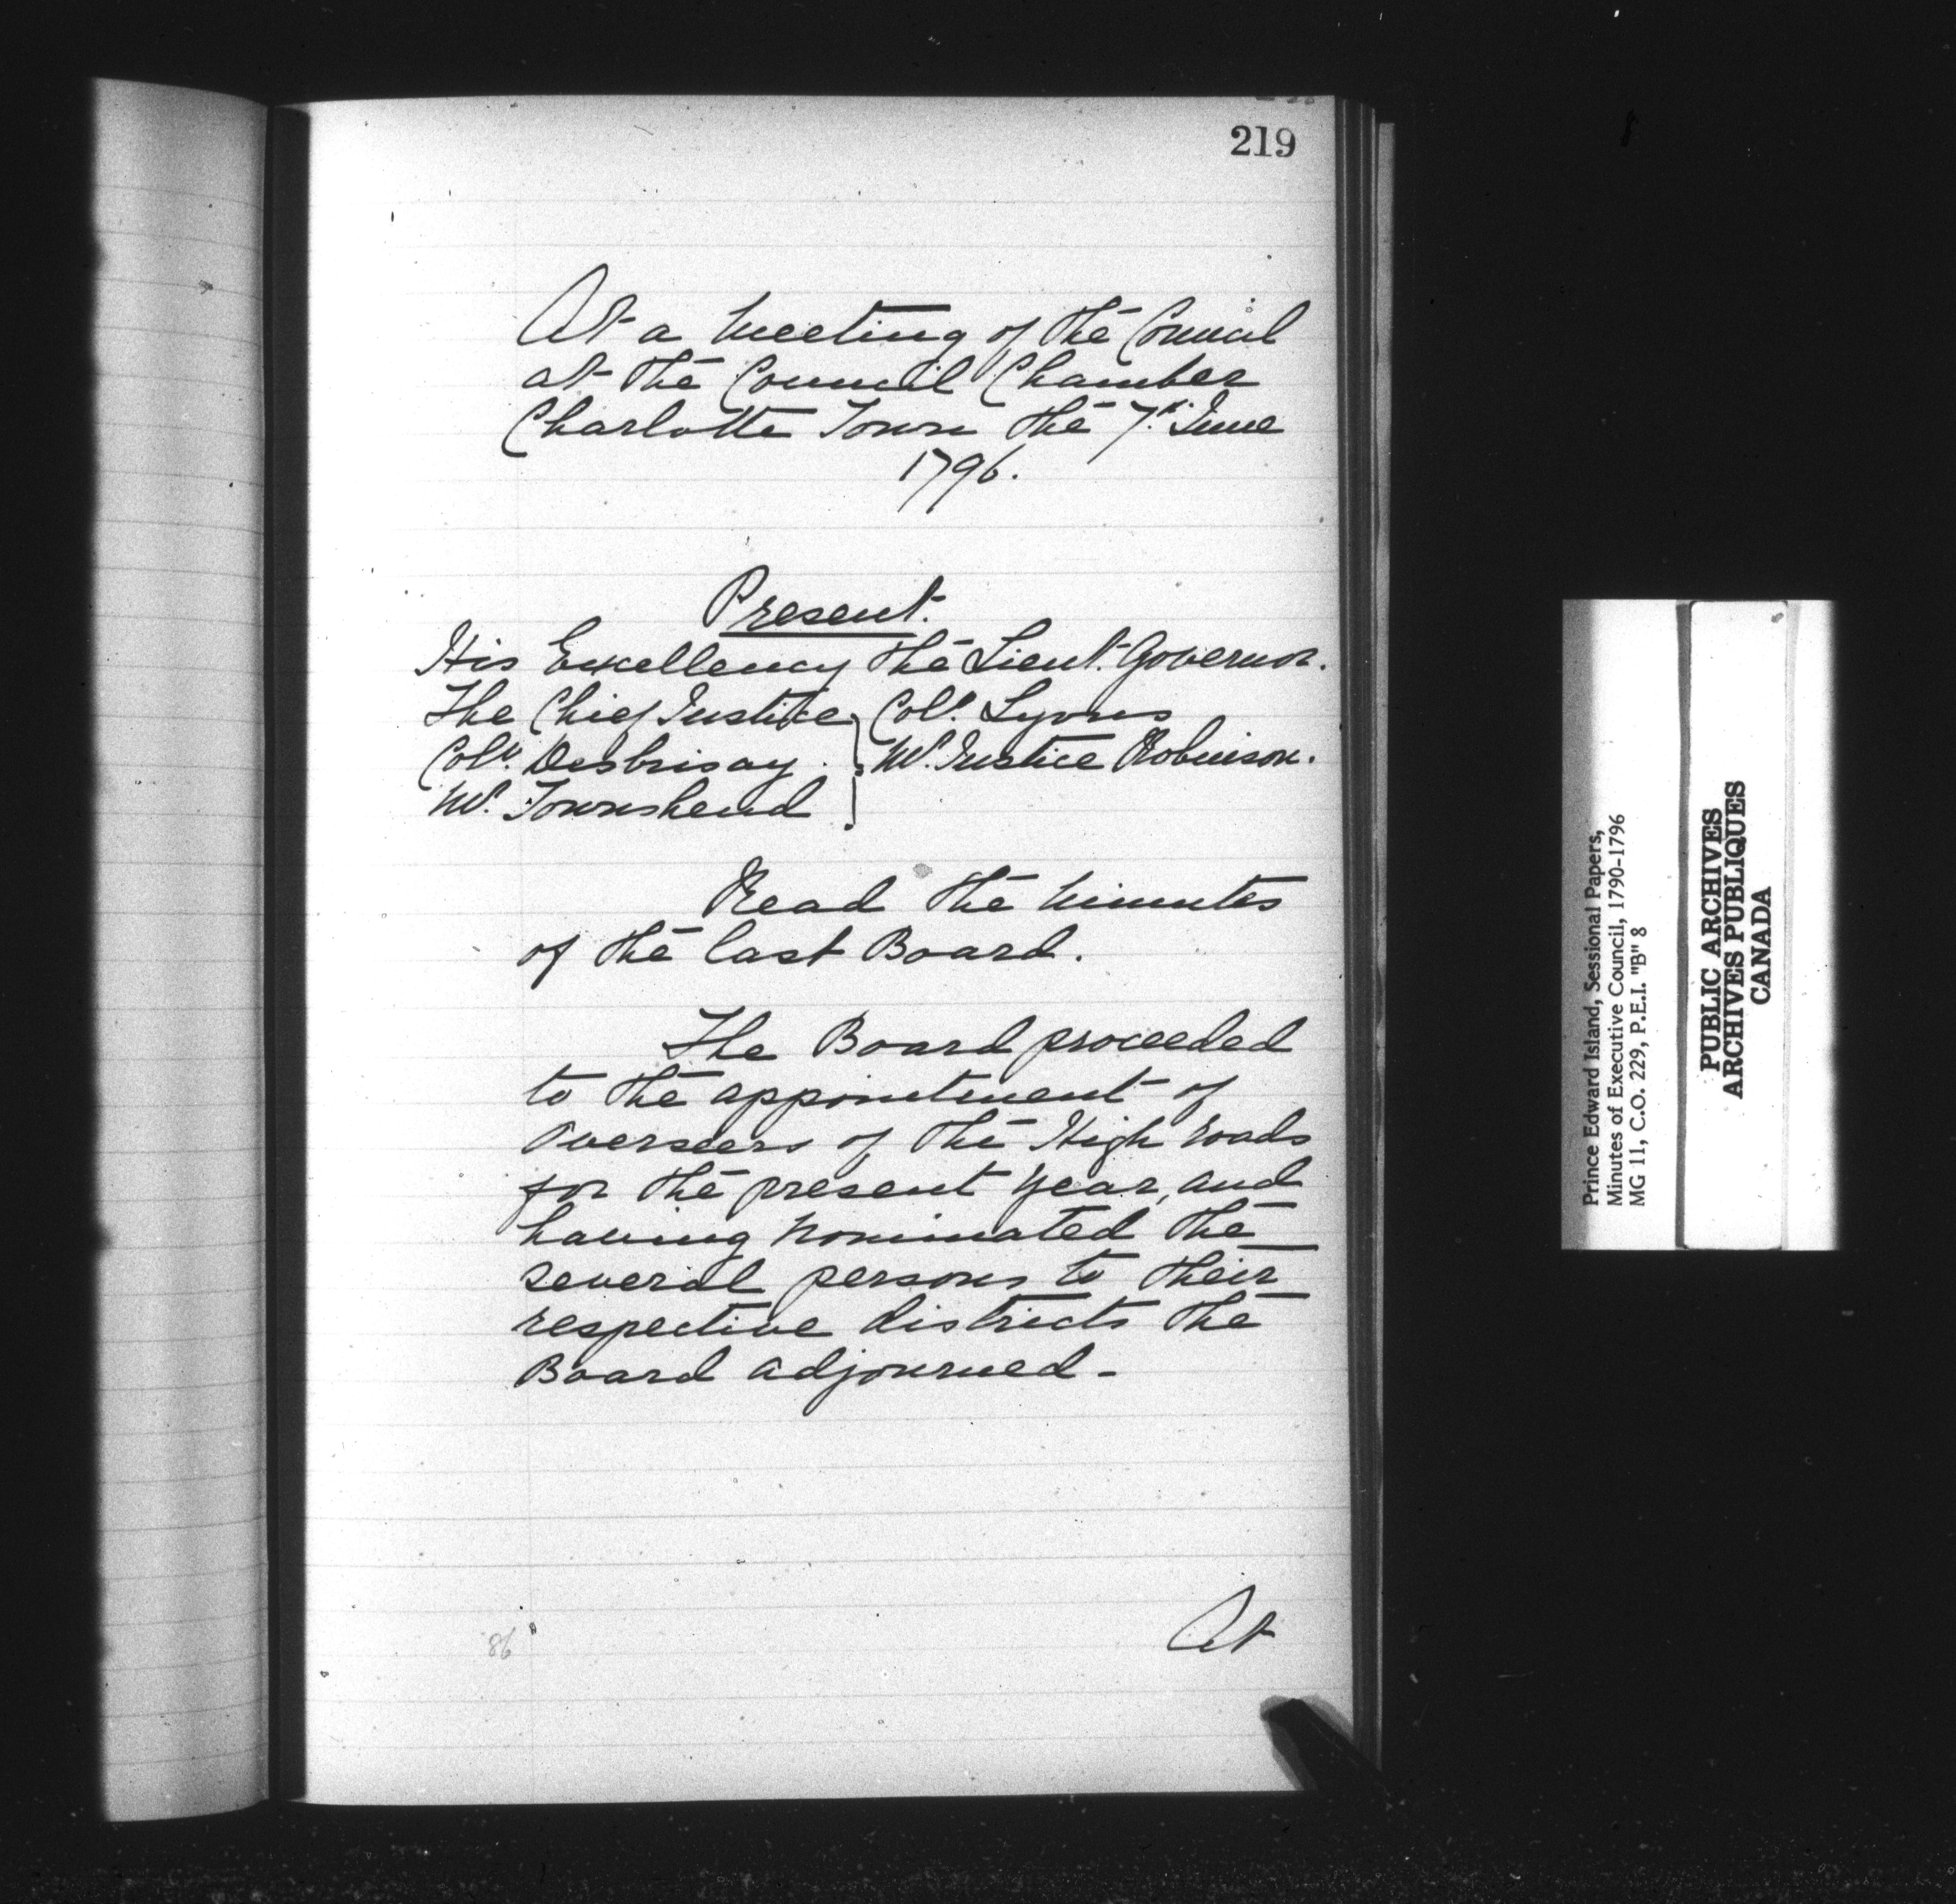 219
At a Meeting of the Council
at the Council Chamber
Charlotte Town the 7th June
1796.
Present.
His Excellency the Lieut. Governor.
The Chief Justice } Coll. Lyons
Coll. Desbrisay } Mr. Justice Robinson.
Mr. Townshend }
Read the Minutes
of the last Board.
The Board proceeded
to the appointment of
Overseers of the High roads
for the present year, and
having nominated the
several persons to their
respective districts the
Board adjourned-
At
86
Prince Edward Island, Sessional Papers,
Minutes of Executive Council, 1790-1796
MG 11, C.O. 229, P.E.I. "B" 8
PUBLIC ARCHIVES
ARCHIVES PUBLIQUES
CANADA